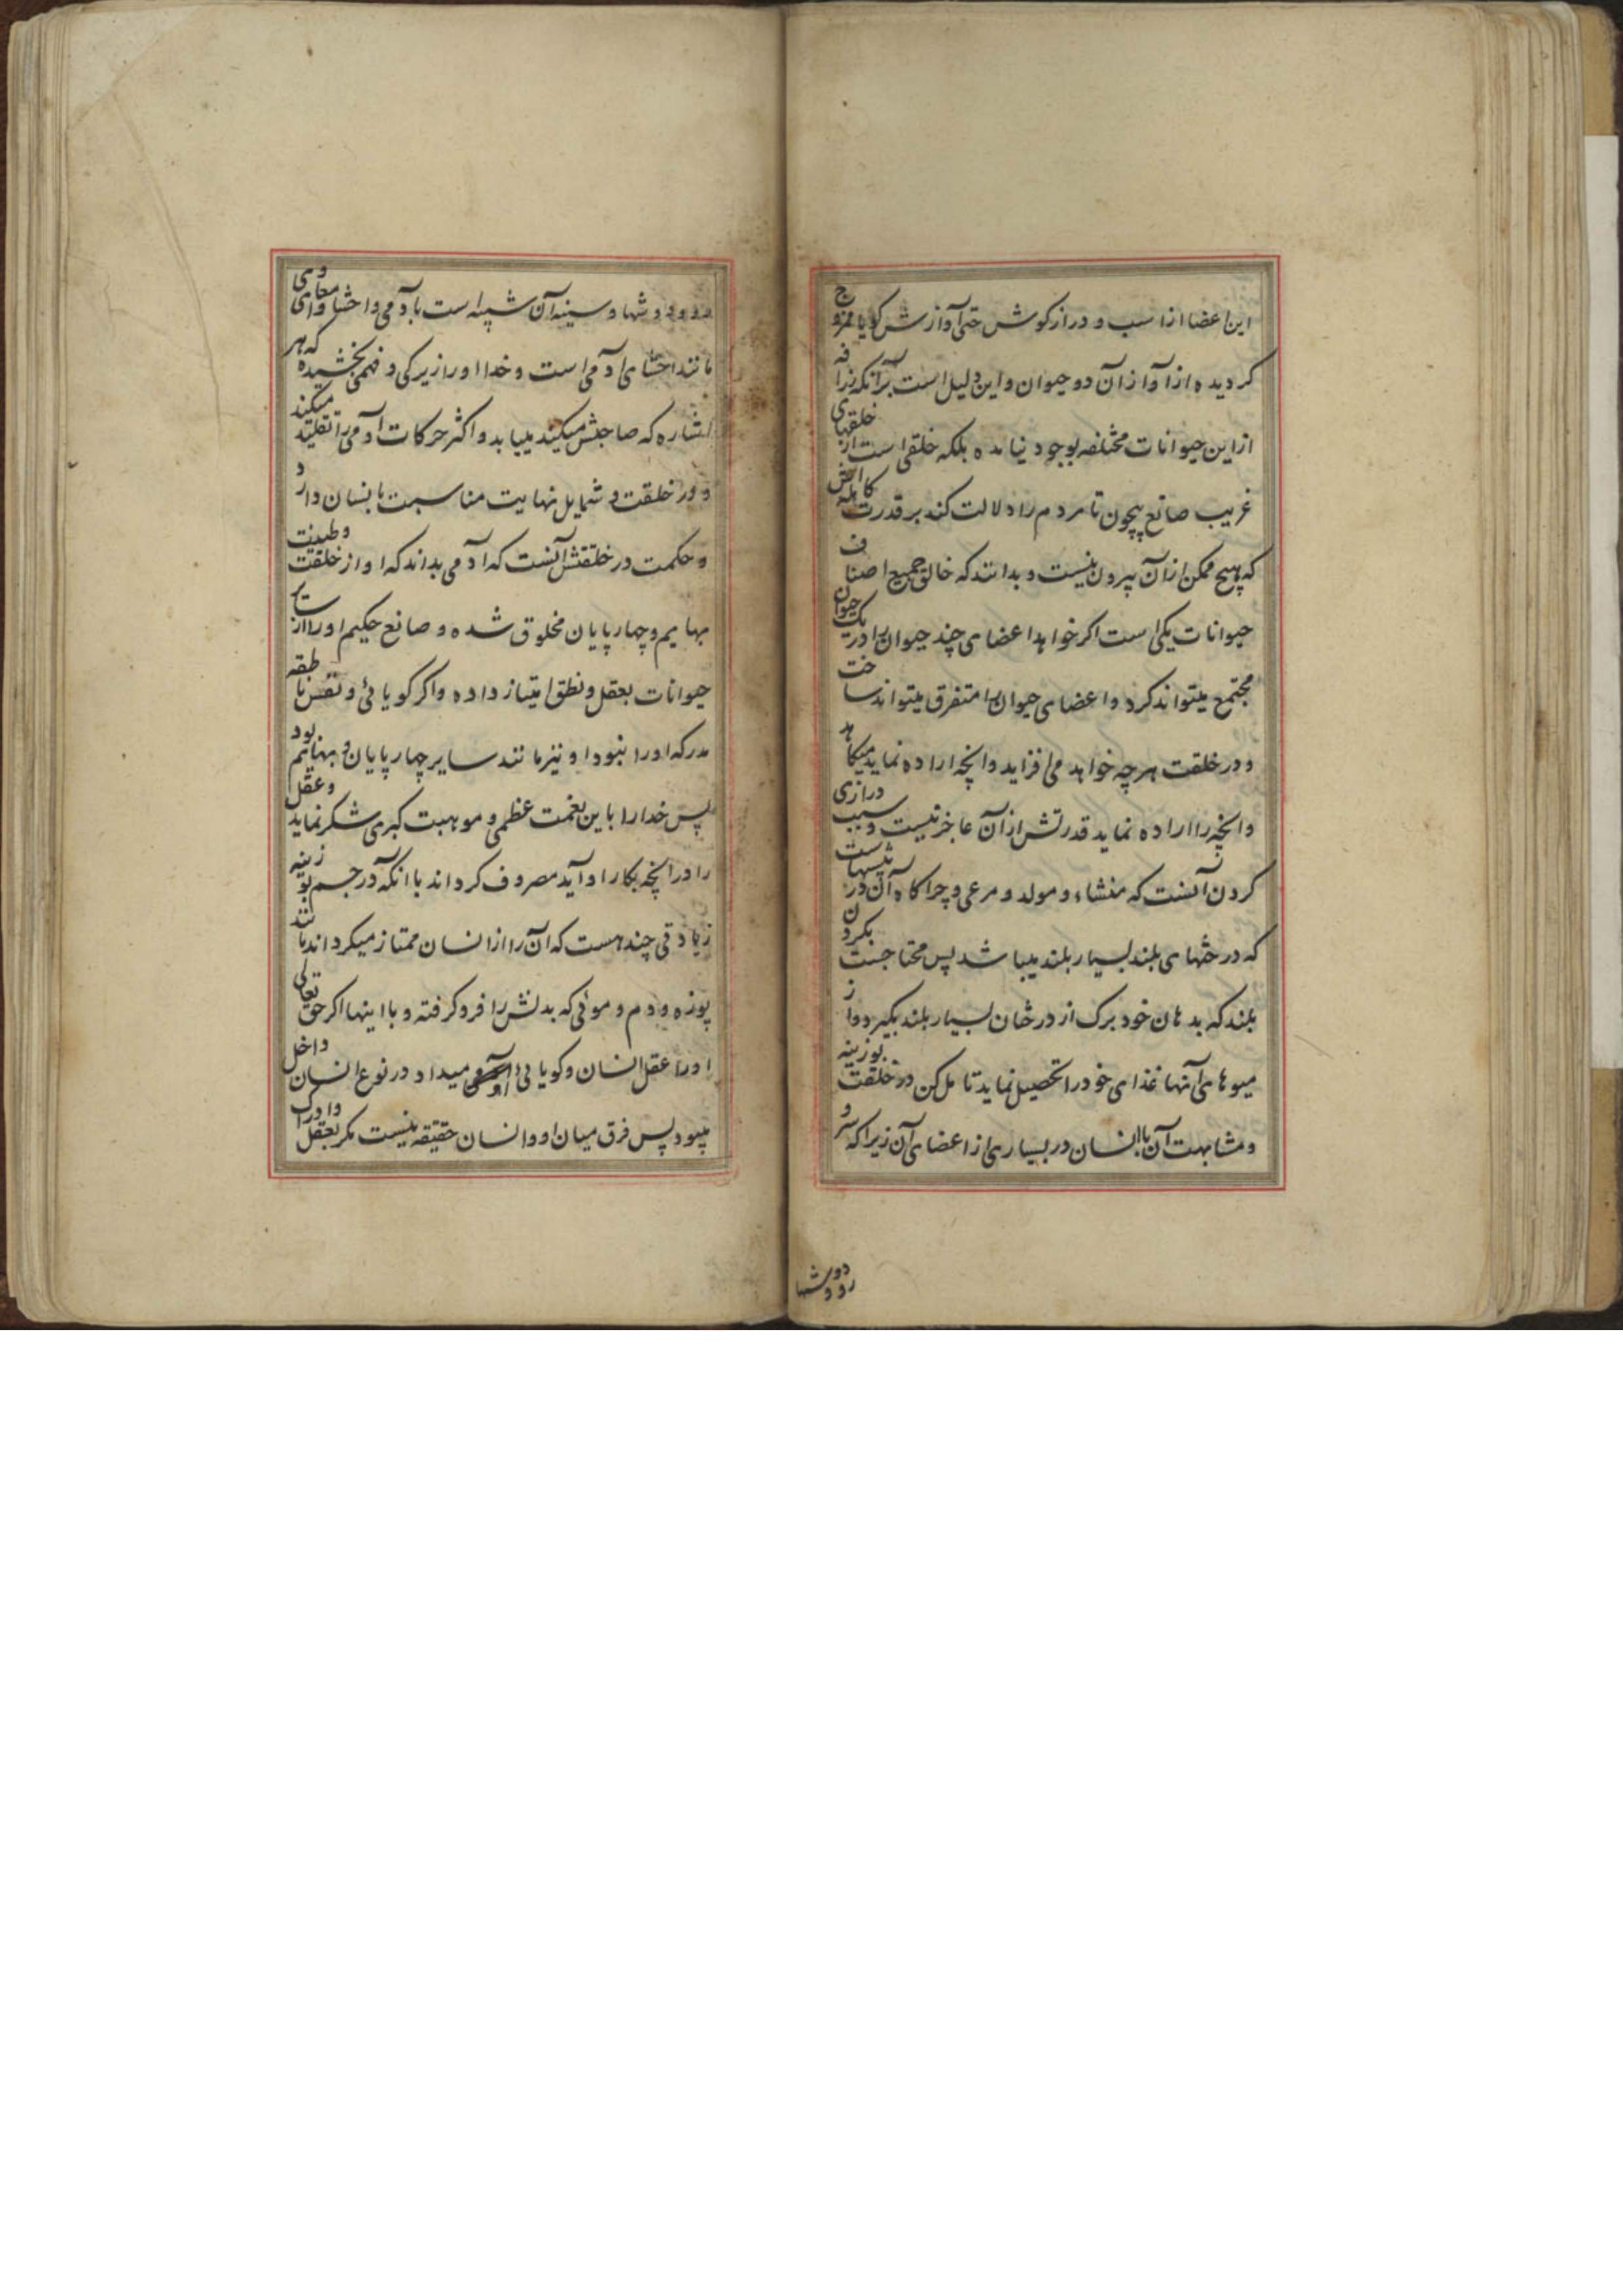 این اعضا از اسب و دراز کوش حتی آوازش کویا ممزوج
کردیده از آواز آن دو حیوان و این دلیل است برآنکه زرافه
از این حیوانات مختلفه بوجود نیامده بلکه خلقی است از خلقهای
غریب صانع بیچون تا مردم را دلالت کند بر قدرت کامله اش
که هیچ ممکن از آن بیرون نیست و بدانند که خالق جمیع اصناف
حیوانات یکی است اکر خواهد اعضای چند حیوان را در یک حیوان
مجتمع میتواند کرد و اعضای حیوان را متفرق میتواند ساخت
و در خلقت هرچه خواهد می افزاید و آنچه اراده نماید میکاهد
و آنچه را اراده نماید قدرتش از آن عاجز نیست و سبب درازی
کردن آنست که منشاء و مولد و مرعی و چراکاه آن در بیشهاست
که درختهای بلند بسیار بلند میباشد پس محتاجست بکردن
بلند که بدهان خود برک از درختان بسیار بلند بکیرد و از
میوهای آنها غذای خود را تحصیل نماید تامل کن در خلقت بوزینه
و مشابهت آن با انسان در بسیاری از اعضای آن زیرا که سر و
رو و دوشها
رو و دوشها و سینه آن شبیه است بآدمی و احشا و امعای وی
مانند احشای آدمی است و خدا او را زیرکی و فهمی بخشیده که هر
اشاره که صاحبش میکند مییابد و اکثر حرکات آدمی را تقلید میکند
و در خلقت و شمایل نهایت مناسبت بانسان دارد
و حکمت در خلقتش آنست که آدمی بداند که او از خلقت و طینت
بهایم و چهارپایان مخلوق شده و صانع حکیم او را از سایر
حیوانات بعقل و نطق امتیاز داده و اکر کویائی و نفس ناطقه
مدرکه او را نبود او نیز مانند سایر چهارپایان و بهایم بود
پس خدا را باین نعمت عظمی و موهبت کبری شکر نماید و عقل
را در آنچه بکار او آید مصروف کرداند با آنکه در جسم بوزینه
زیادتی چند هست که آن را از انسان ممتاز میکرداند مانند
پوزه و دم و موئی که بدنش را فرو کرفته و با اینها اکر حق تعالی
او را عقل انسان و کویائی آدمی میداد در نوع انسان داخل
میبود پس فرق میان او و انسان حقیقه نیست مکر بعقل و ادراک